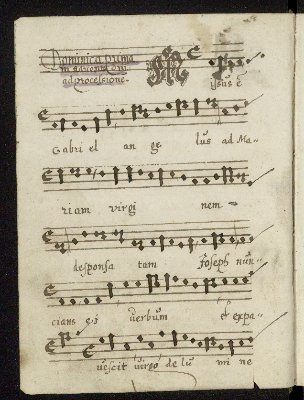 Dominica prima
in adventu dni
ad processione.
Missus e
Gabri el an ge lus ad Ma-
riam virgi nem
desponsa tam Joseph nun-
cians ei verbum et expa-
vescit virgo de lu mi ne